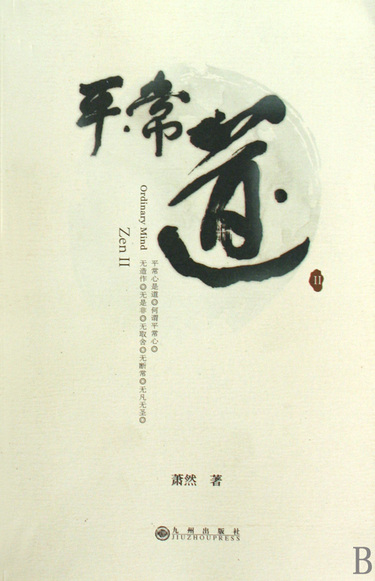 平常道
II
Ordinary Mind
Zen II
平常心是道◎何谓平常心◎
无造作◎无是非◎无取舍◎无断常◎无凡无圣◎
萧然 著
九州出版社
JIUZHOUPRESS
B